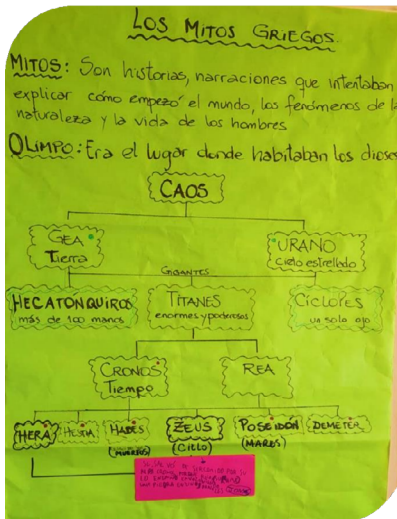 LOS MITOS GRIEGOS
MITOS: Son historias, narraciones que intentaban
explicar cómo empezó el mundo, los fenómenos de la
naturaleza y la vida de los hombres
OLIMPO: Era el lugar donde habitaban los dioses
CAOS
GEA
Tierra
URANO
Cielo estrellado
GIGANTES
HECATONQUIROS
más de 100 manos
TITANES
enormes y poderosos
CÍCLOPES
un solo ojo
CRONOS
Tiempo
REA
HERA
HESTIA
HADES
(MUERTOS)
ZEUS
(CIELO)
POSEIDÓN
(MARES)
DEMETER